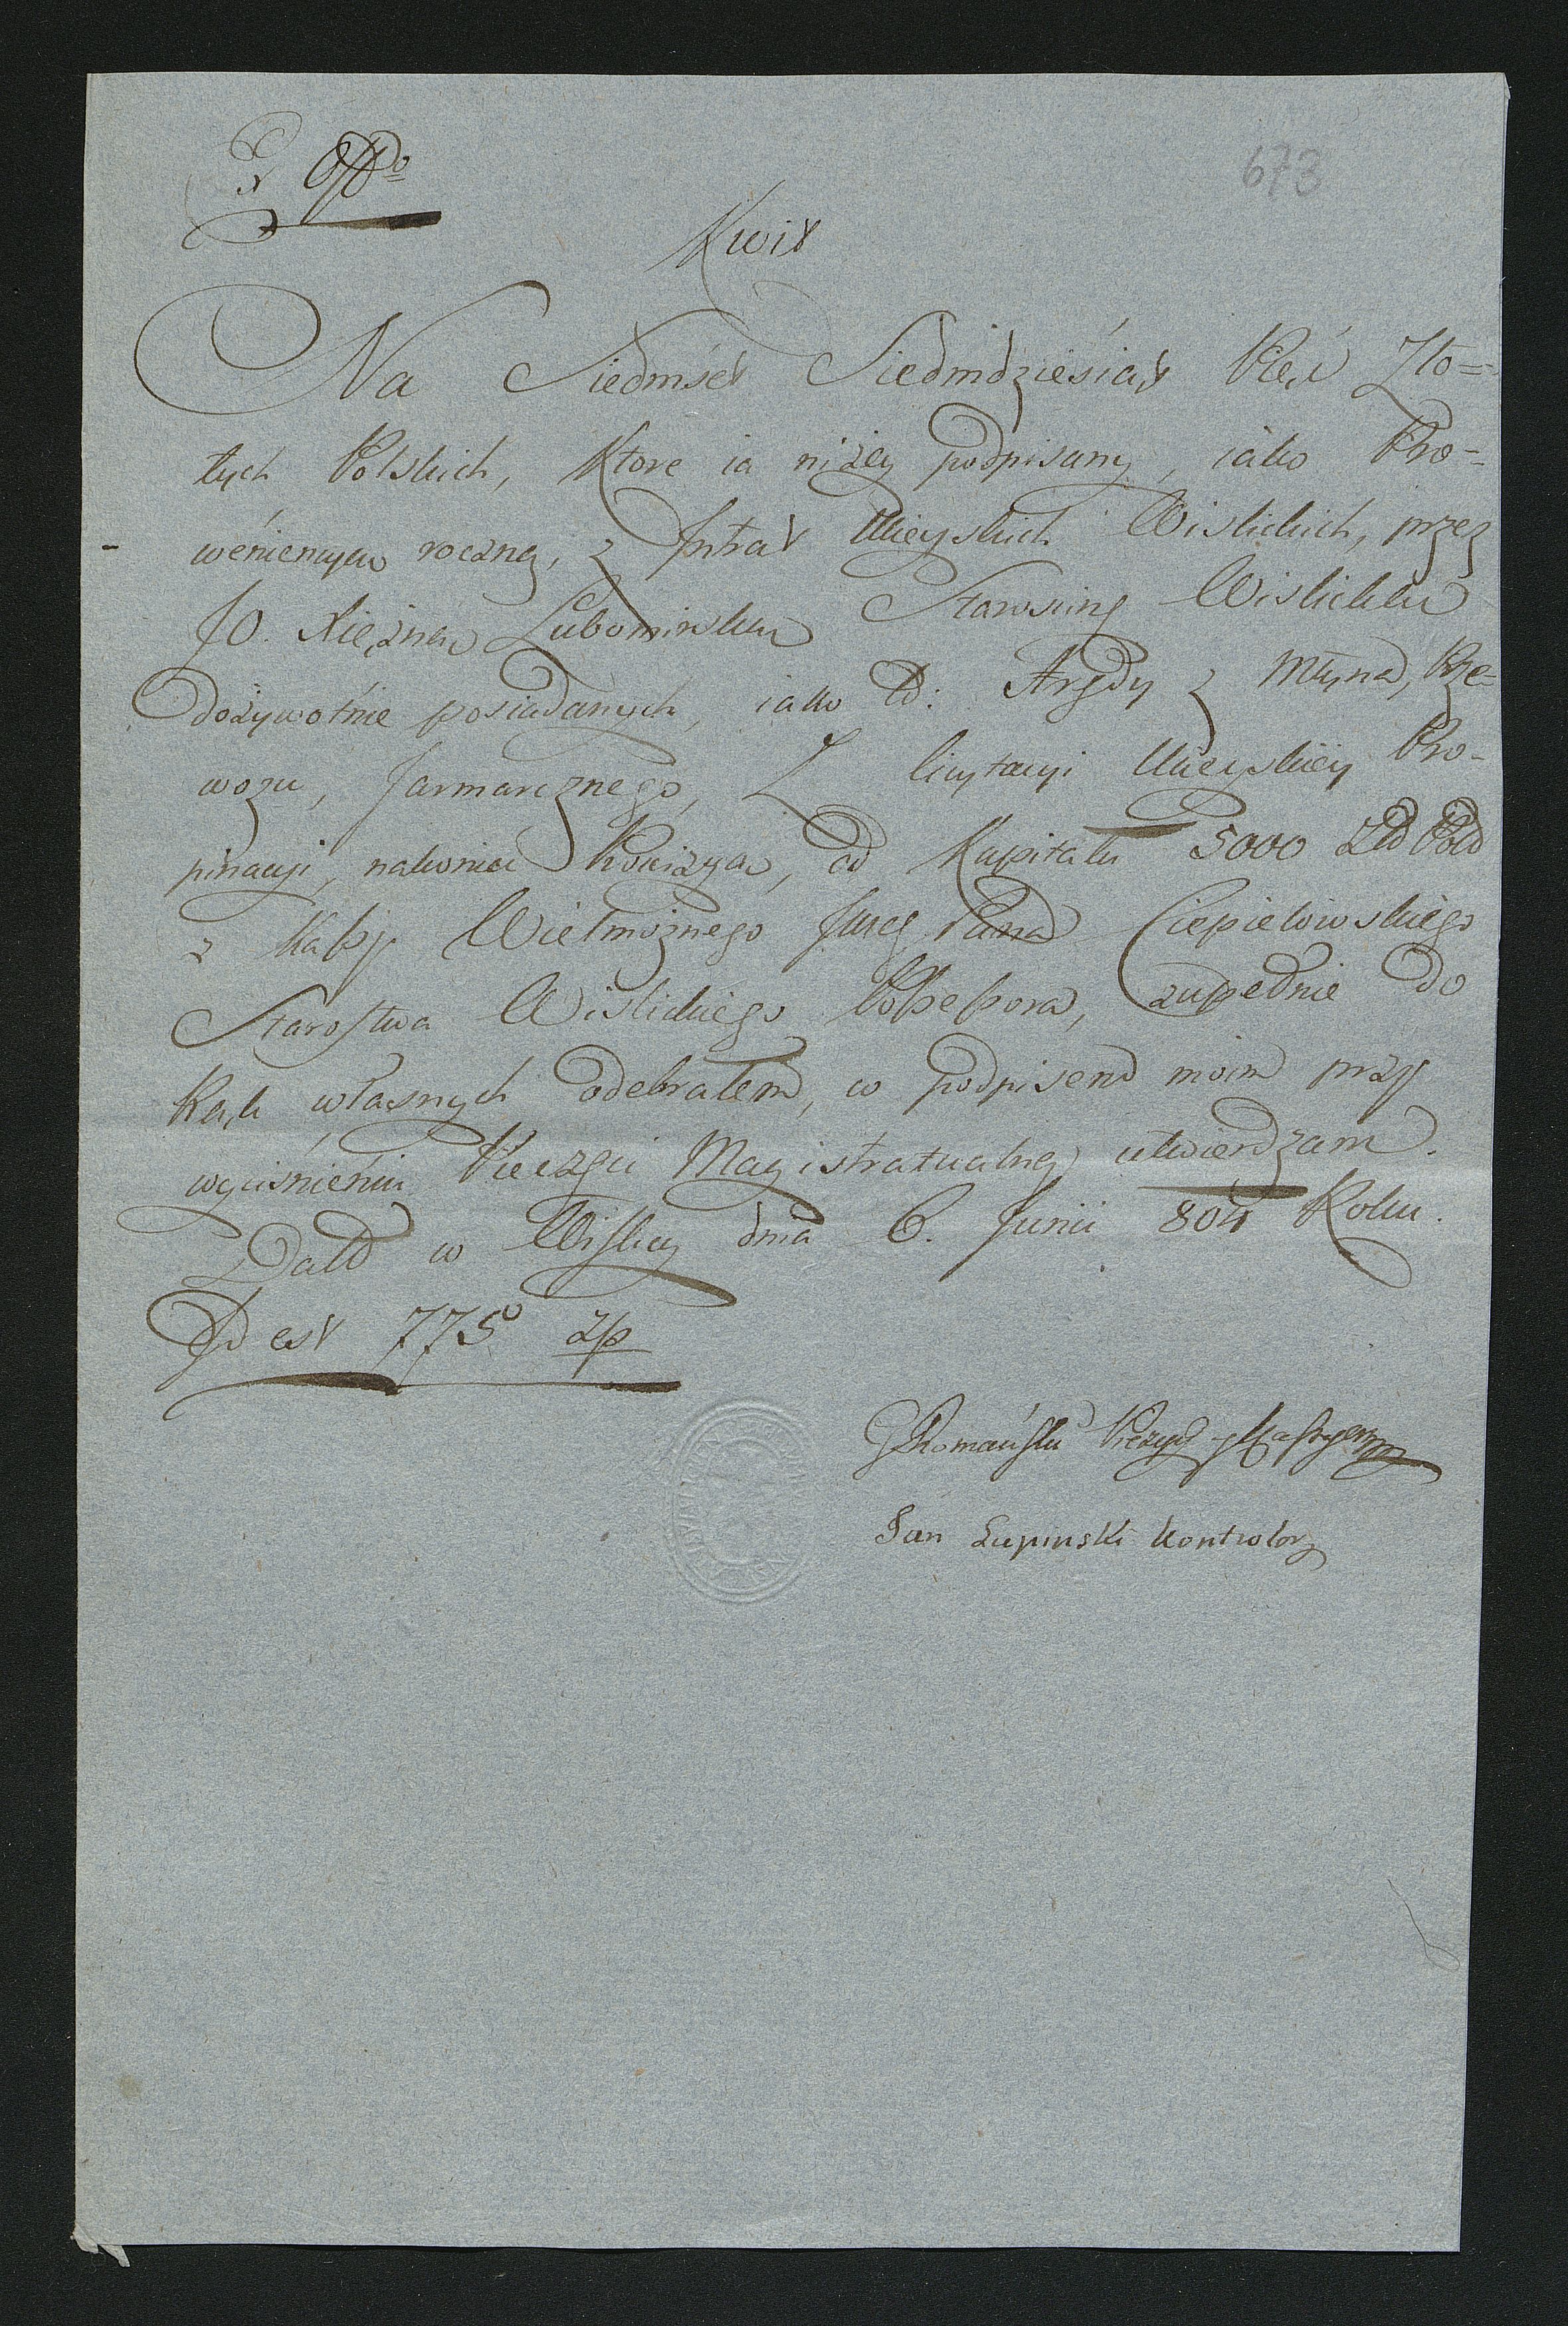 673
Kwit
Na Siedmset Siedmdziesiąt Pięć Zło=
tych Polskich, Ktore ia niżey podpisany, iako Pro=
weniencyą roczną, z Intrat Mieyskich Wislickich, przez
JO. Xiężnę Lubomirską Starościnę Wislicką
Dożywotnie posiadanych, iako to: Arędy z Młyna, Prze-
wozu, Jarmarcznego, Z licytacyi Mieyskiey Pro-
pinacyi, nakoniec Prowizyą, od Kapitału 5000 Zld Pold
z Kassy Wielmożnego Jmcg Pana Ciepielowskiego
Starostwa Wislickiego Possessora, zupełnie do
Rąk własnych odebrałem, co podpisem moim przy
wyciśnieniu Pieczęci Magistratualney utwierdzam.
Datd w Wislicy dnia 6. Junii 804 Roku.
Id est 775 zp
GRomański Prezyd
Jan Łupinski Kontrolor